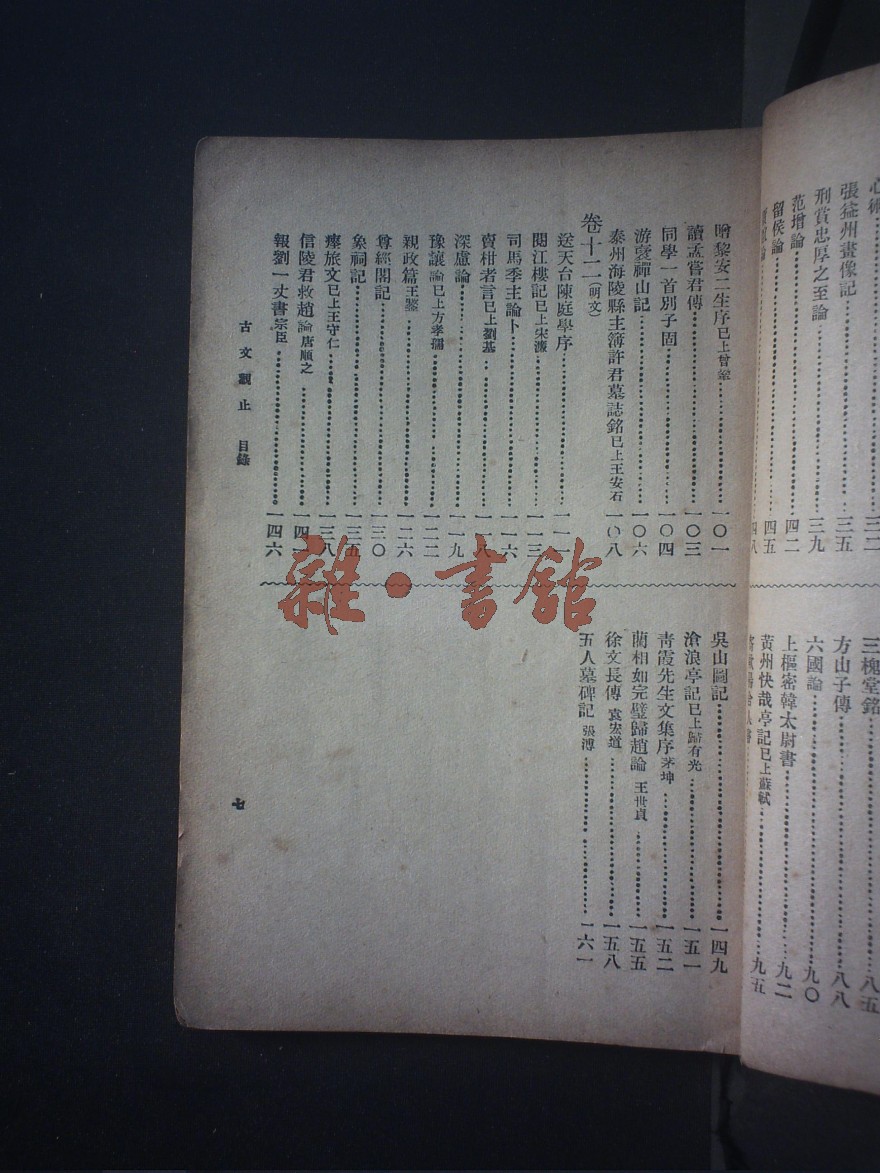 心術
張益州畫像記 三五
刑賞忠厚之至論 三九
范增論 四二
留侯論 四五
四八
三槐堂銘 八五
方山子傳 八八
六國論 九〇
上樞密韓太尉書 九二
黃州快哉亭記已上蘇轍 九五
贈黎安二生序已上曾鞏 一〇一
讀孟嘗君傳 一〇三
同學一首別子固 一〇四
游褒禪山記 一〇六
泰州海陵縣主簿許君墓誌銘已上王安石 一〇八
卷十二(明文)
送天台陳庭學序 一一一
閱江樓記已上宋濂 一一三
司馬季主論卜 一一六
賣柑者言已上劉基 一一八
深慮論 一一九
豫讓論已上方孝孺 一二二
親政篇王鏊 一二六
尊經閣記 一三〇
象祠記 一三五
瘞旅文已上王守仁 一三八
信陵君救趙論唐順之 一四一
報劉一丈書宗臣 一四六
吳山圖記 一四九
滄浪亭記已上歸有光 一五一
青霞先生文集序茅坤 一五二
藺相如完璧歸趙論 王世貞 一五五
徐文長傳 袁宏道 一五八
五人墓碑記 張溥 一六一
古文觀止 目錄
七
雜·書館